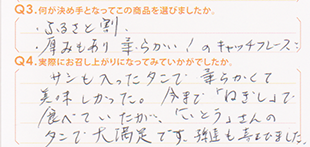 Q3.何が決め手となってこの商品を選びましたか。
・ふるさと割.
・厚みもあり 柔らかい!のキャッチフレーズ
Q4.実際にお召し上がりになってみていかがでしたか。
サシも入ったタンで 柔らかくて
美味しかった。今まで「ねぎし」で
食べていたが、「いとう」さんの
タンで大満足です。孫達も喜びました。